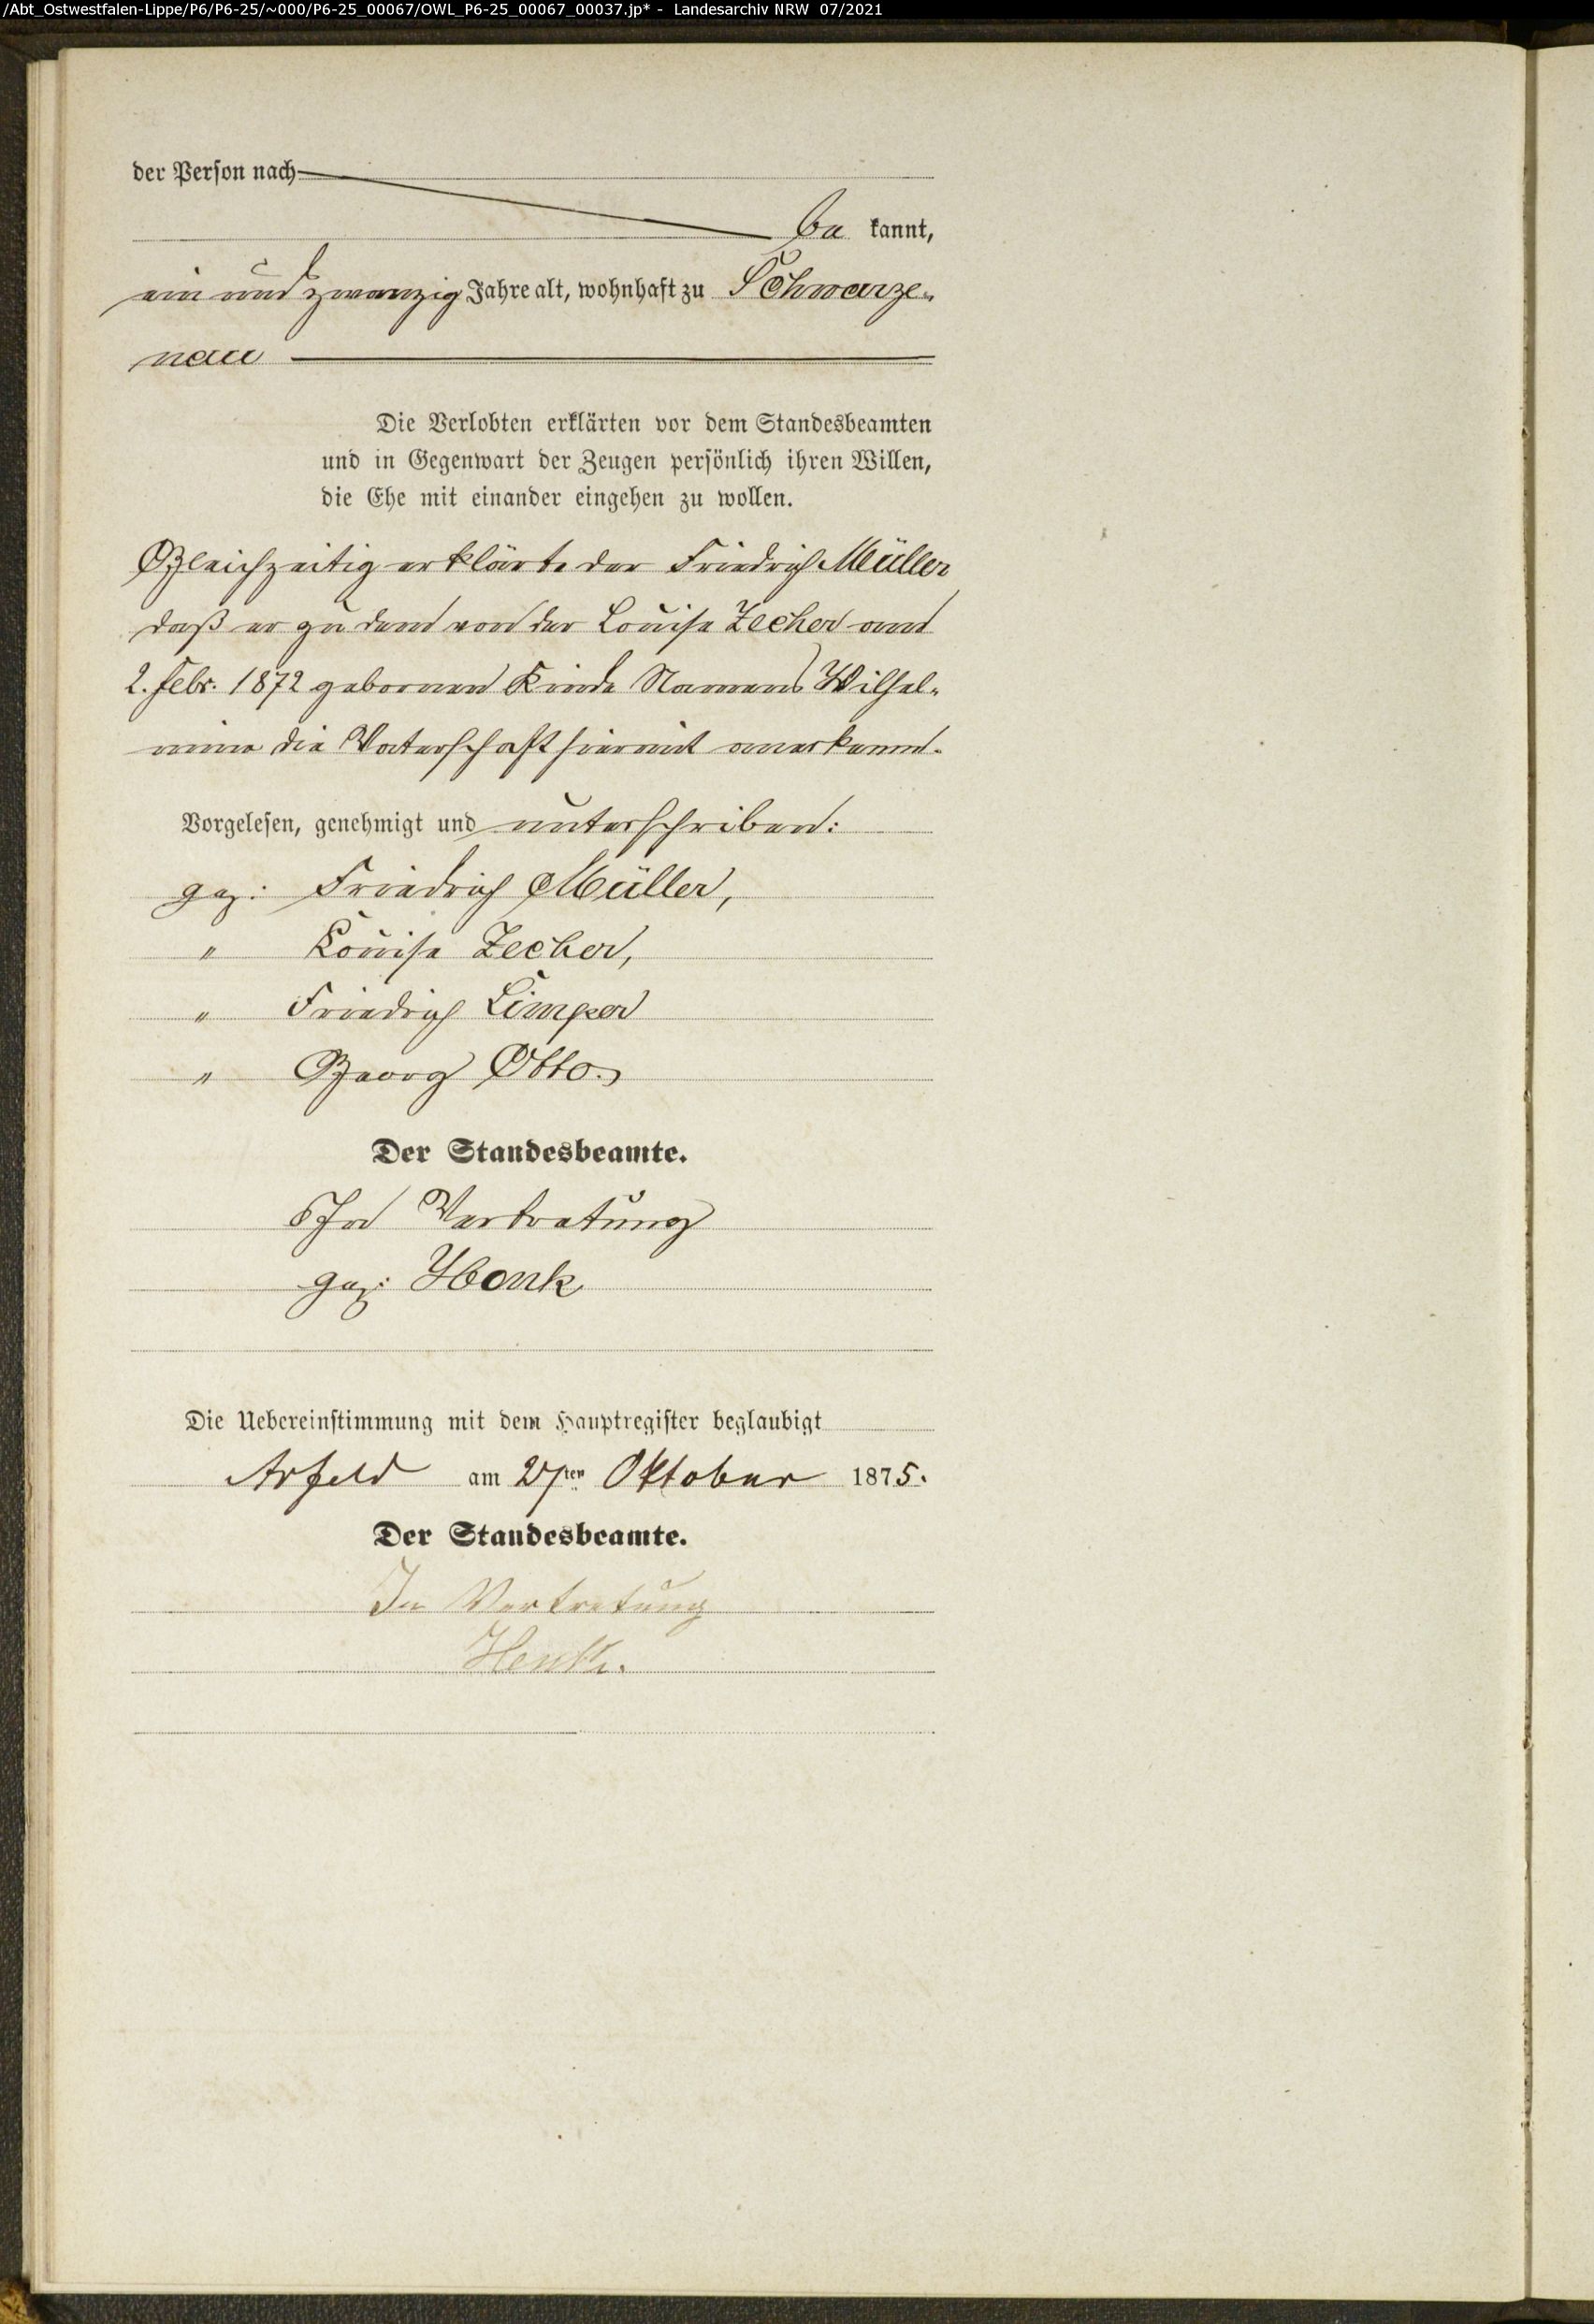 /Abt_Ostwestfalen-Lippe/P6/P6-25/~000/P6-25_00067/OWL_P6-25_00067_00037.jp* - Landesarchiv NRW 07/2021
der Person nach
be kannt,
ein und zwanzig Jahre alt, wohnhaft zu Schwarze-
nau
Die Verlobten erklärten vor dem Standesbeamten
und in Gegenwart der Zeugen persönlich ihren Willen,
die Ehe mit einander eingehen zu wollen.
Gleichzeitig erklärte der Friedrich Müller
daß er zu dem von der Louise Zecher am
2. Febr. 1872 gebornen Kinde Namens Wilhel-
mine die Vaterschaft hiermit anerkennt.
Vorgelesen, genehmigt und unterschriben:
gez: Friedrich Müller,
" Louise Zecher,
" Friedrich Limper
" Georg Otto.
Der Standesbeamte.
In Vertretung
gez: Henk
Die Uebereinstimmung mit dem Hauptregister beglaubigt
Arfeld am 27ten Oktober 1875.
Der Standesbeamte.
In Vertretung
Henk.